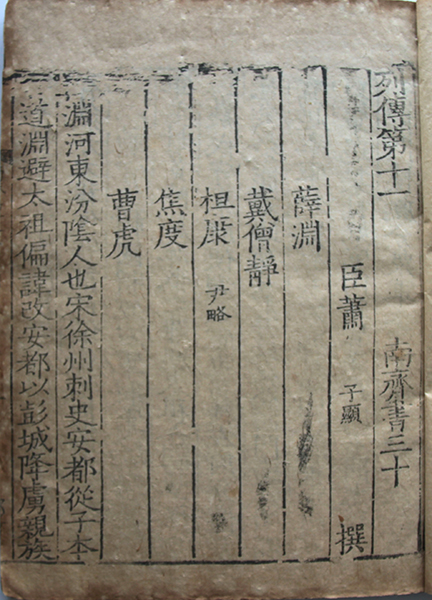 列傳第十一 南齊書三十
臣蕭 子顯 撰
薛淵
戴僧靜
桓康 尹略
焦度
曹虎
淵河東汾陰人也宋徐州刺史安都從子本
道淵避太祖偏諱改安都以彭城降虜親族